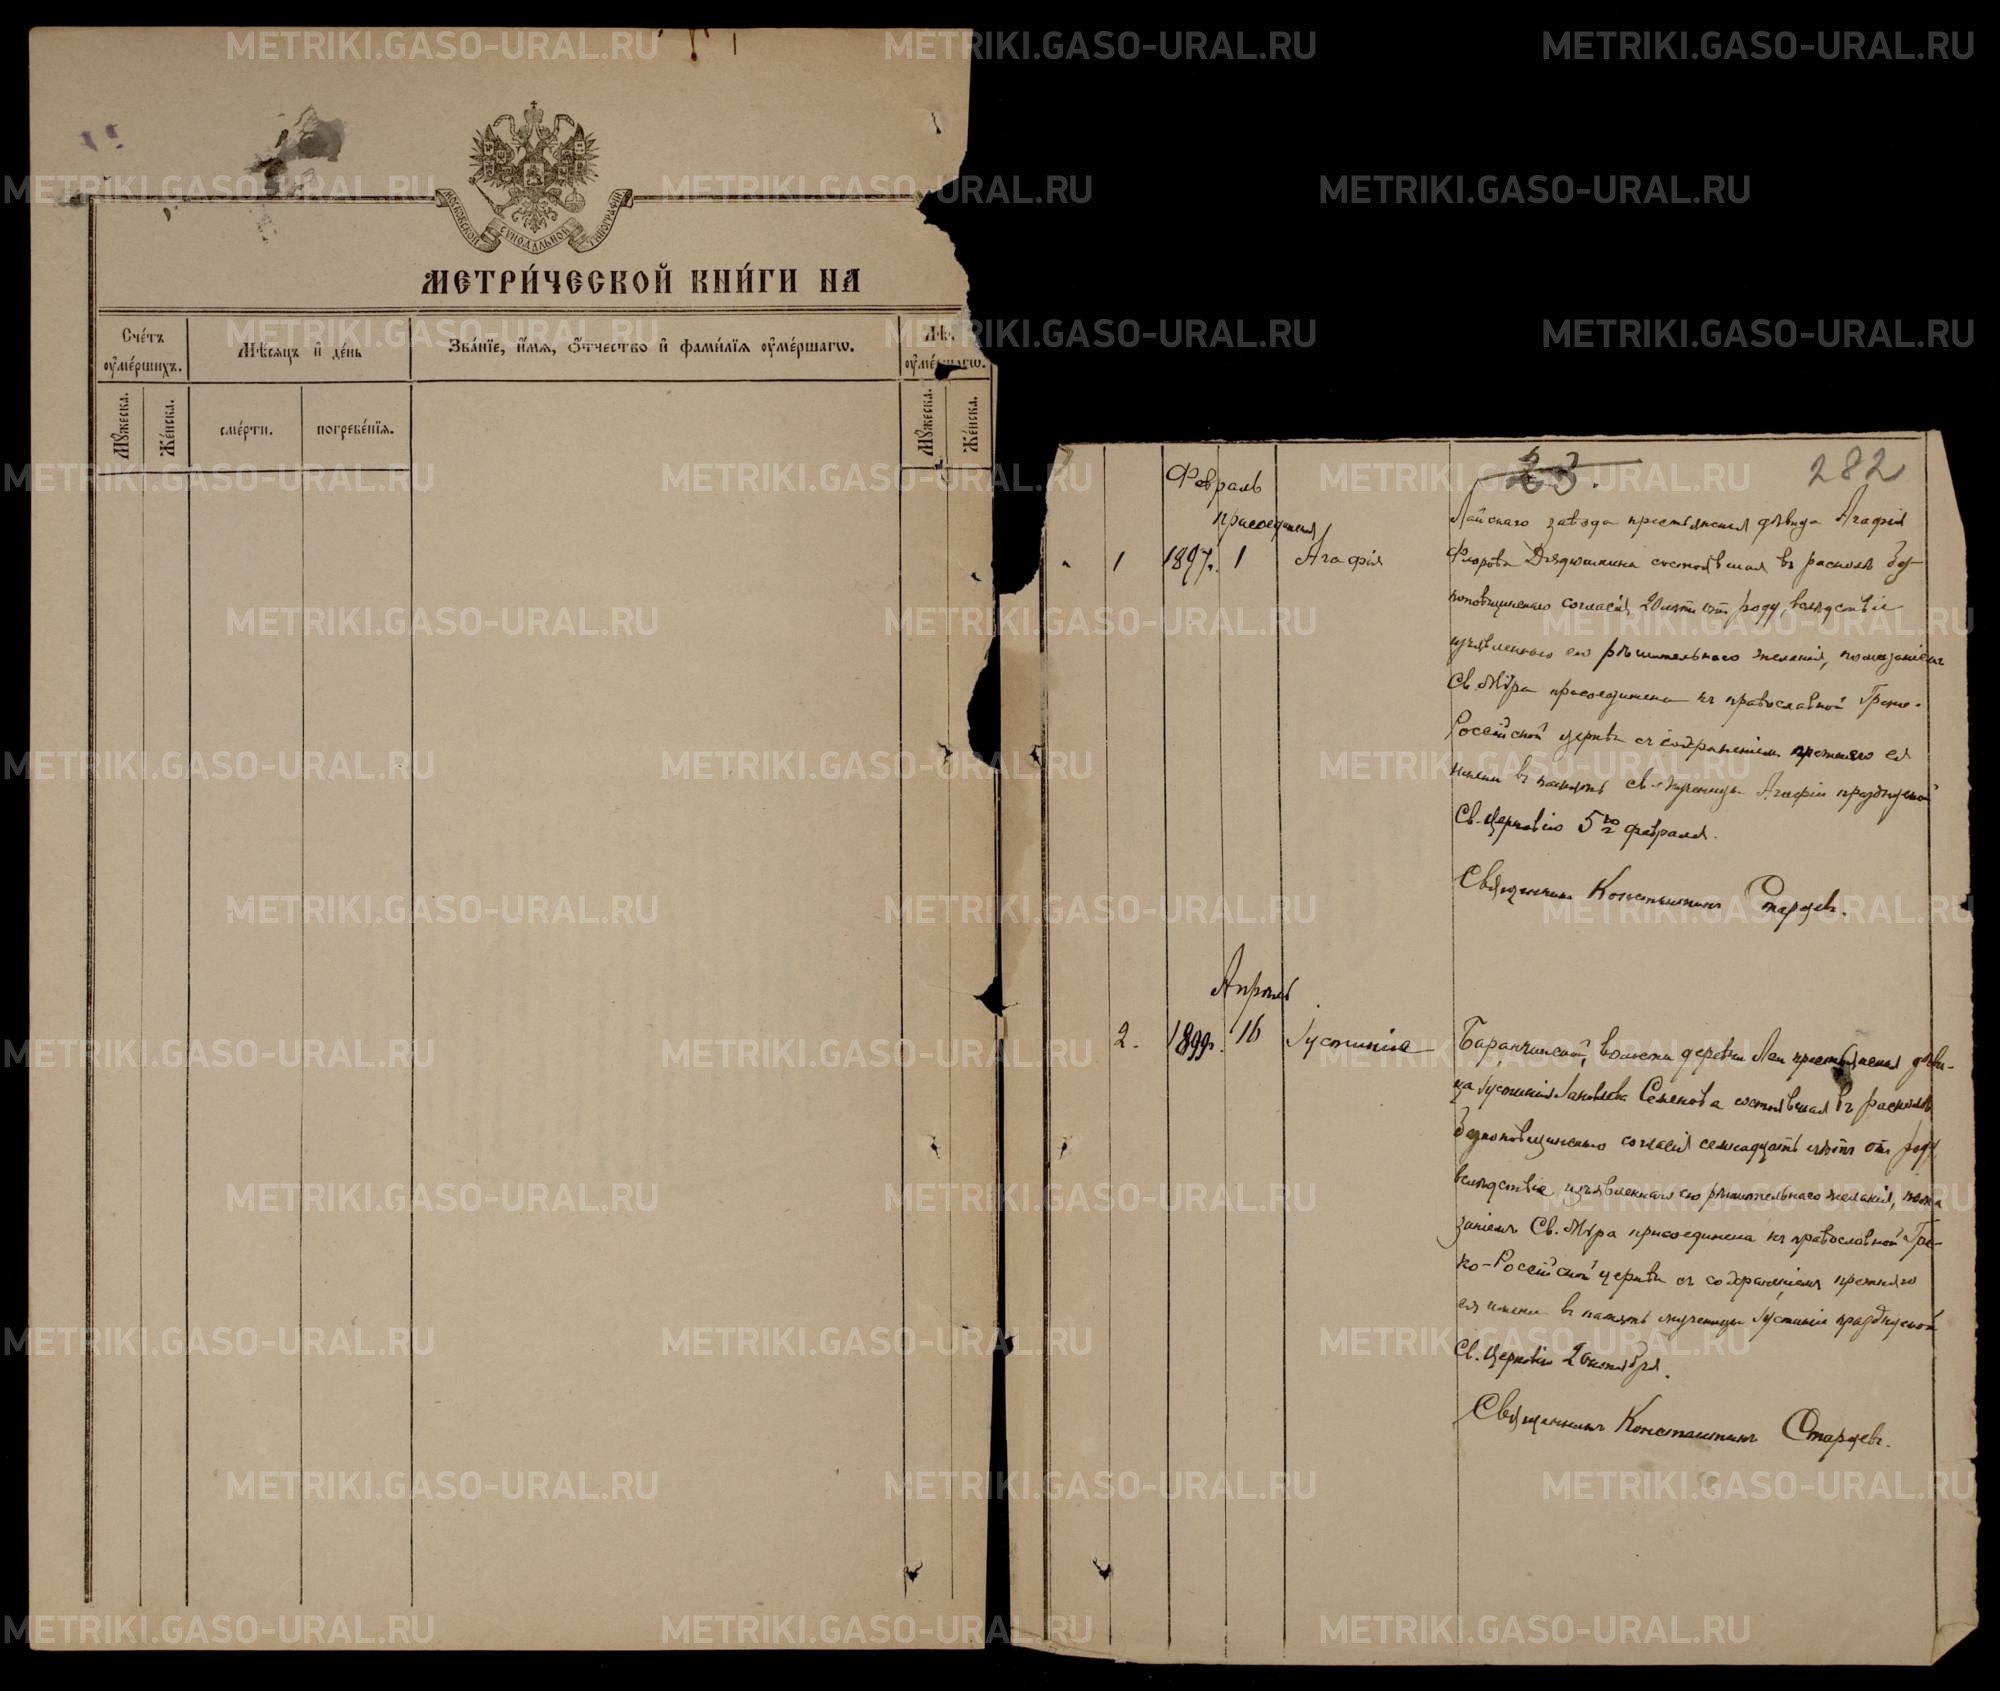 МОСКОВСКОЙ СѴНОДАЛЬНОЙ ТИПОГРАФІИ
МЕТРИ́ЧЕСКОЙ КНИ́ГИ НА
Сче́тъ оуме́ршихъ.
Мѣ́сяцъ и де́нь
Зва́нїе, и́мя, Ѻ́тчество и фами́лїя оуме́ршагѡ.
Лѣ
оуме́ршагѡ.
Мꙋ́жеска.
Же́нска.
сме́рти.
погребе́нїя.
Мꙋ́жеска.
Же́нска.
23.
282
Февраль
присоединенія
1
1897г.
1
Агафія
Лайскаго завода крестьянская дѣвица Агафія
Фиорова Дядюшкина состоявшая въ расколѣ без-
поповщинскаго согласія, 20 лѣтъ отъ роду, вслѣдствіе
изъявленнаго ею рѣшительнаго желанія, помазаніемъ
Св. Мѵра присоединена къ православной Греко-
Россійской церкви съ сохраненіемъ прежняго ея
имени въ память св. мученицы Агафіи празднуемой
Св. Церковію 5го февраля.
Священникъ Константинъ Старцевъ.
Апрѣль
2.
1899г.
16
Іустинія
Баранчинской волости деревни Лаи крестьянская дѣви-
ца Іустинія Яковлева Семенова состоявшая въ расколѣ
безпоповщинскаго согласія семнадцать лѣтъ отъ роду
вслѣдствіе изъявленнаго ею рѣшительнаго желанія, пома
заніемъ Св. Мѵра присоединена къ православной Гре-
ко-Россійской церкви съ сохраненіемъ прежняго
ея имени въ память мученицы Іустиніи празднуемой
Св. Церковію 2 октября.
Священникъ Константинъ Старцевъ.
METRIKI.GASO-URAL.RU